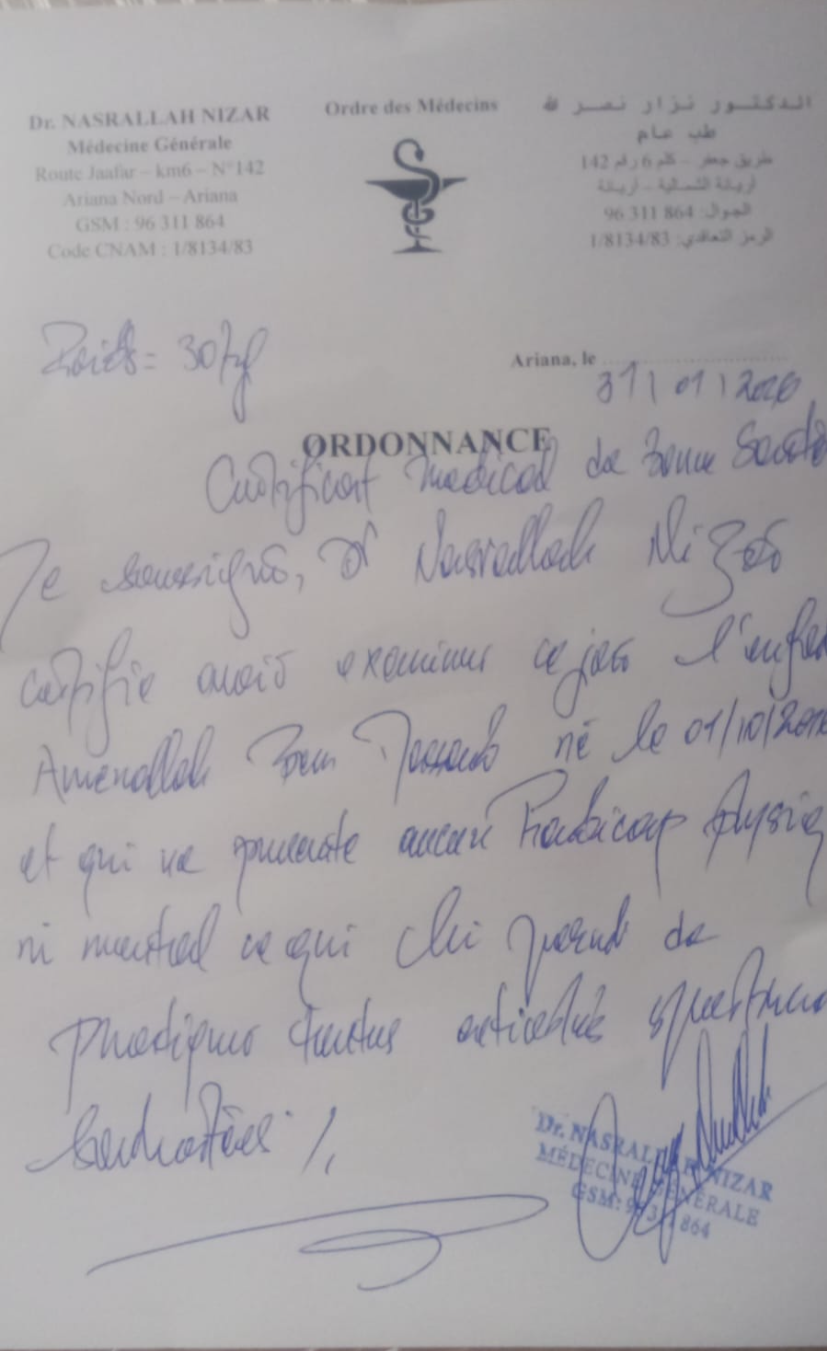 Dr. NASRALLAH NIZAR
Médecine Générale
Route Jaafar – km6 – N°142
Ariana Nord – Ariana
GSM : 96 311 864
Code CNAM : 1/8134/83
Ordre des Médecins
الدكتور نزار نصر الله
طب عام
طريق جعفر - كلم 6 رقم 142
أريانة الشمالية - أريانة
الجوال: 864 311 96
الرمز التعاقدي: 1/8134/83
Poids = 30 kg
Ariana, le
31/01/2026
ORDONNANCE
Certificat medical de bonne Santé
Je soussigné, Dr Nasrallah Nizar
certifie avoir examiner ce jour l'enfan
Amenallah Ben né le 01/10/201
et qui ne presente aucun handicap physiq
ni mental ce qui lui permet de
pratiquer toutes activités sportives
souhaitées
Dr. NASRALLAH NIZAR
MÉDECINE GÉNÉRALE
GSM: 96 311 864